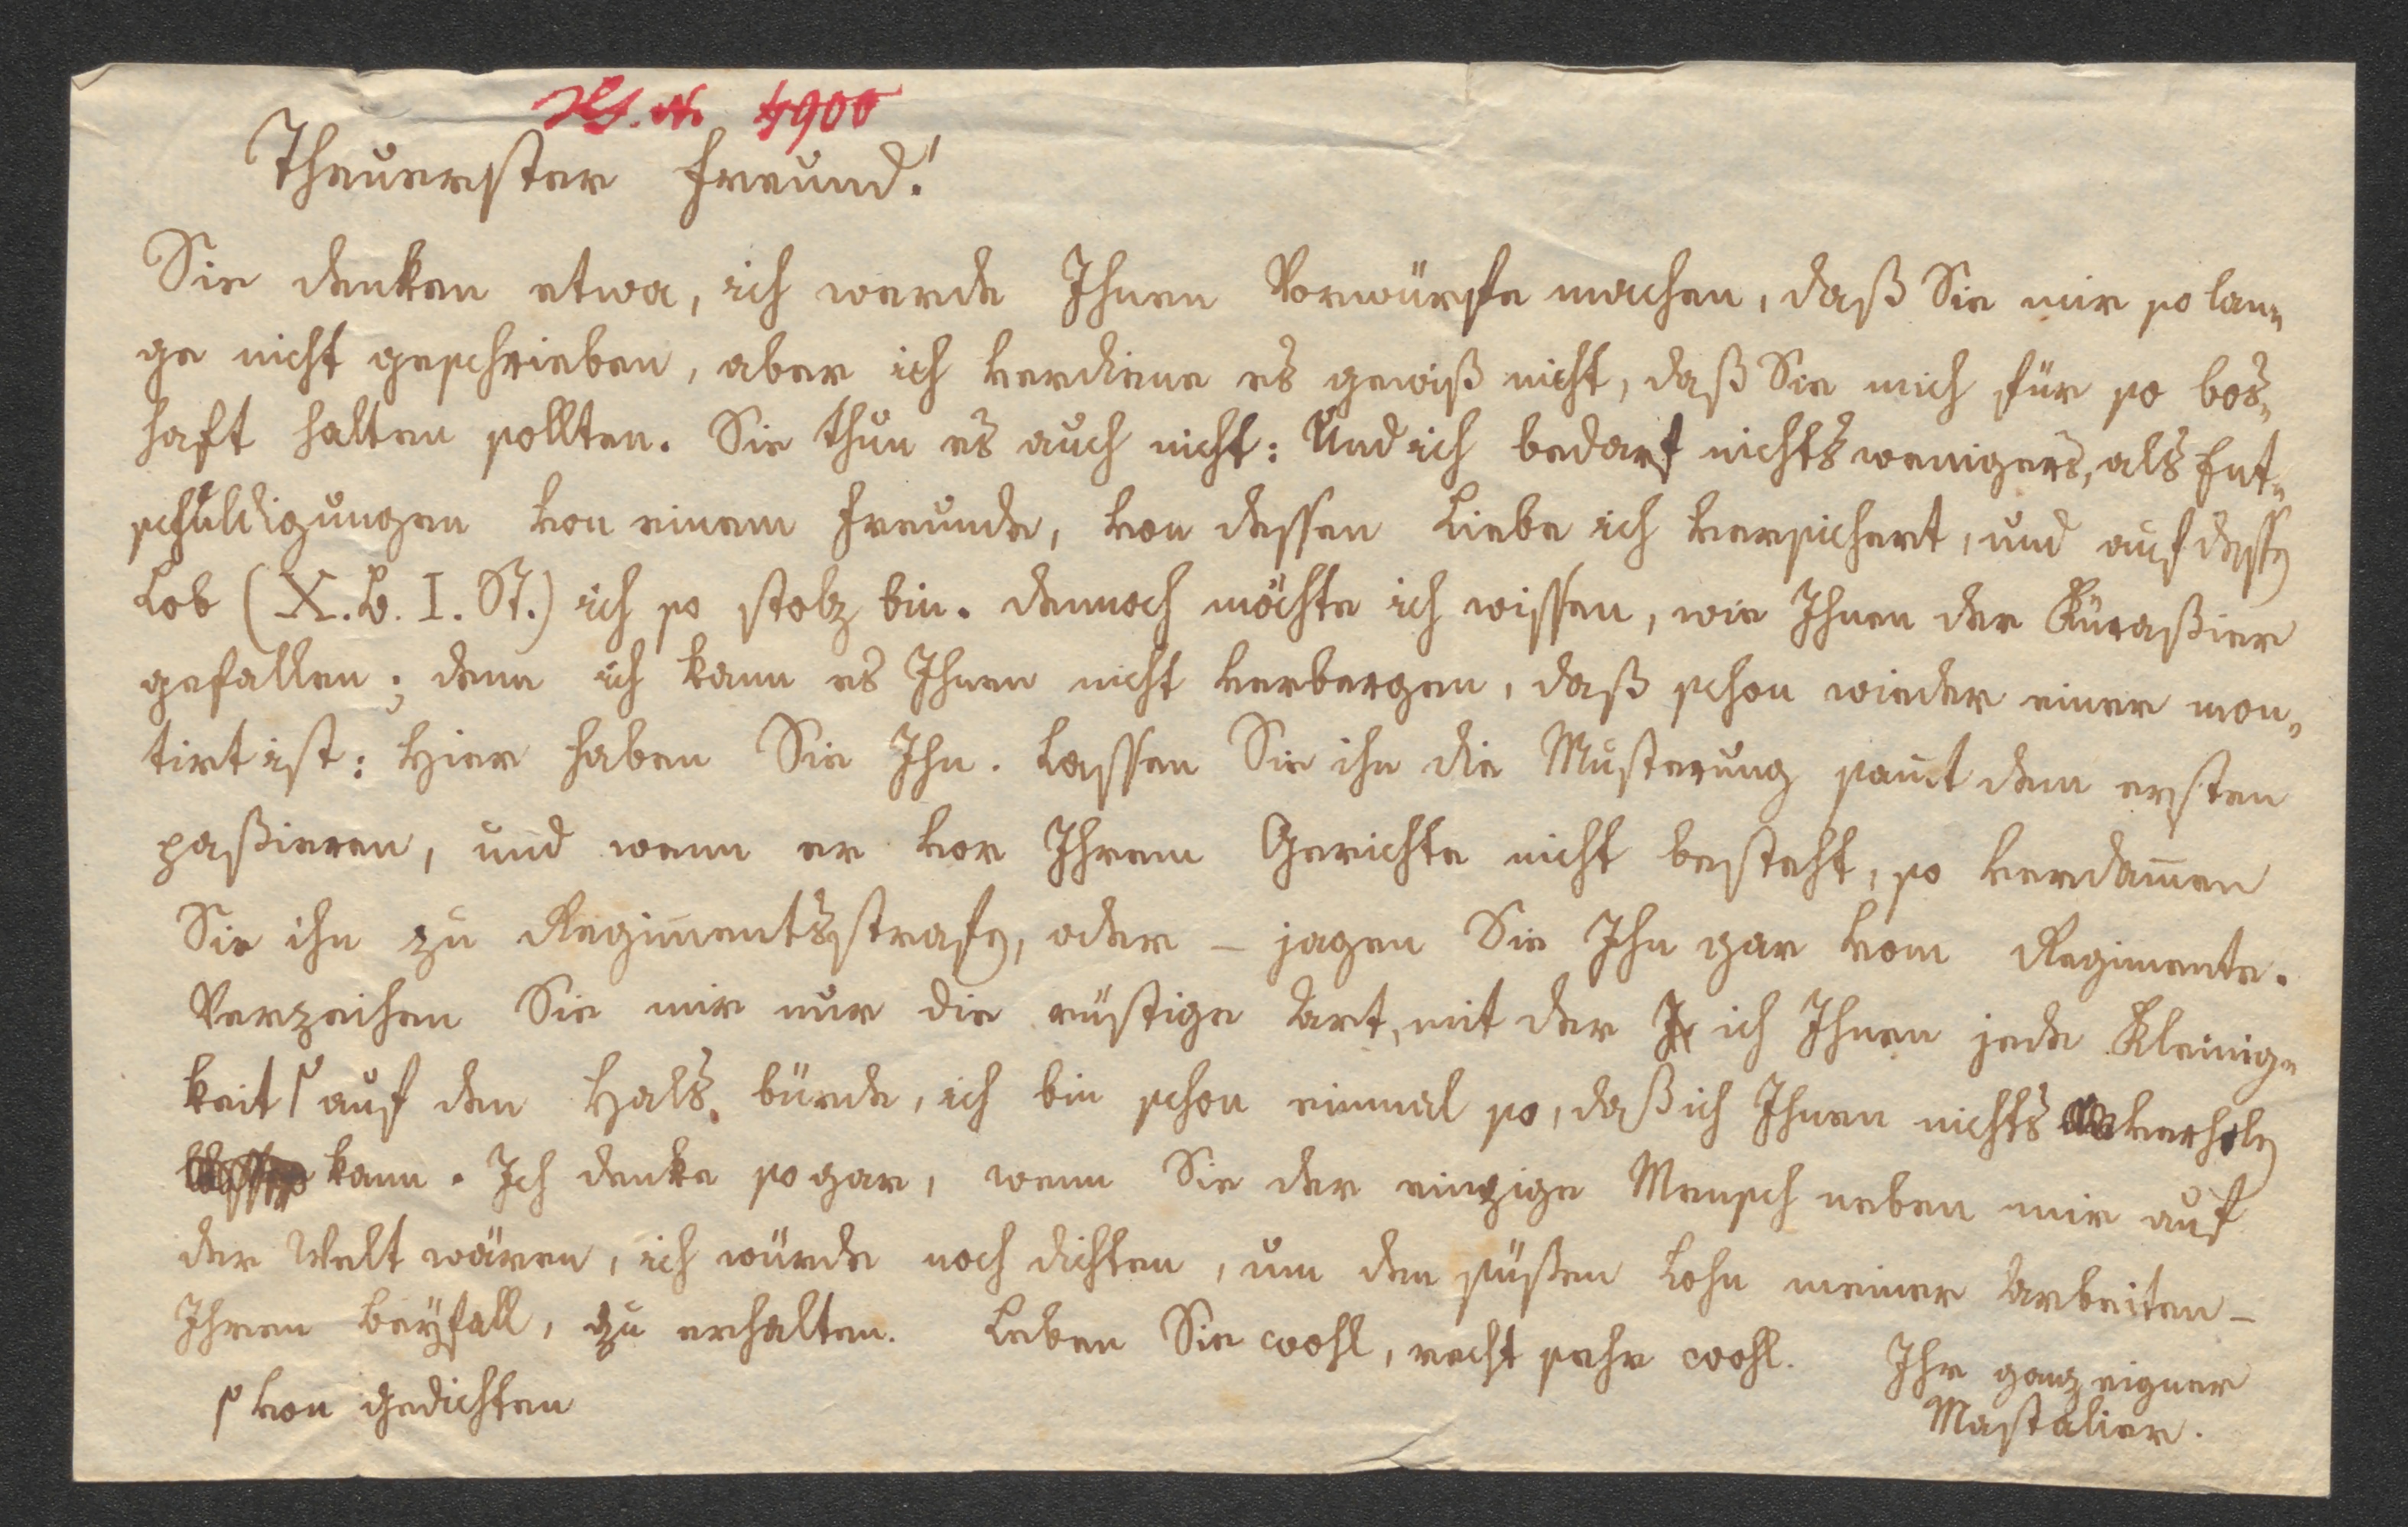 Hs. N. 4900
Theuerster Freund!
Sie denken etwa, ich werde Ihnen Vorwürfe machen, daß Sie mir so lan=
ge nicht geschrieben, aber ich verdiene es gewiß nicht, daß Sie mich für so bos=
haft halten sollten. Sie thun es auch nicht: Und ich bedarf nichts wenigers, als Ent=
schuldigungen von einem Freunde, von dessen Liebe ich versichert, und auf dessen
Lob (X. B. I. St.) ich so stolz bin. Dennoch möchte ich wissen, wie Ihnen der Küraßier
gefallen; denn ich kann es Ihnen nicht verbergen, daß schon wieder einer mon=
tirt ist: Hier haben Sie Ihn. Lassen Sie ihn die Musterung samt dem ersten
paßieren, und wenn er vor Ihrem Gerichte nicht besteht, so verdam̄en
Sie ihn zu Regimentsstrafen, oder – jagen Sie Ihn gar vom Regimente.
Verzeihen Sie mir nur die rüstige Art, mit der ich Ihnen jede Kleinig=
keit auf den Hals bürde, ich bin schon einmal so, daß ich Ihnen nichts verholen
kann. Ich denke sogar, wenn Sie der einzige Mensch neben mir auf
der Welt wären, ich würde noch dichten, um den süßen Lohn meiner Arbeiten –
Ihren Beyfall, zu erhalten. Leben Sie wohl, recht sehr wohl. Ihr ganz eigner
Mastalier.
von Gedichten